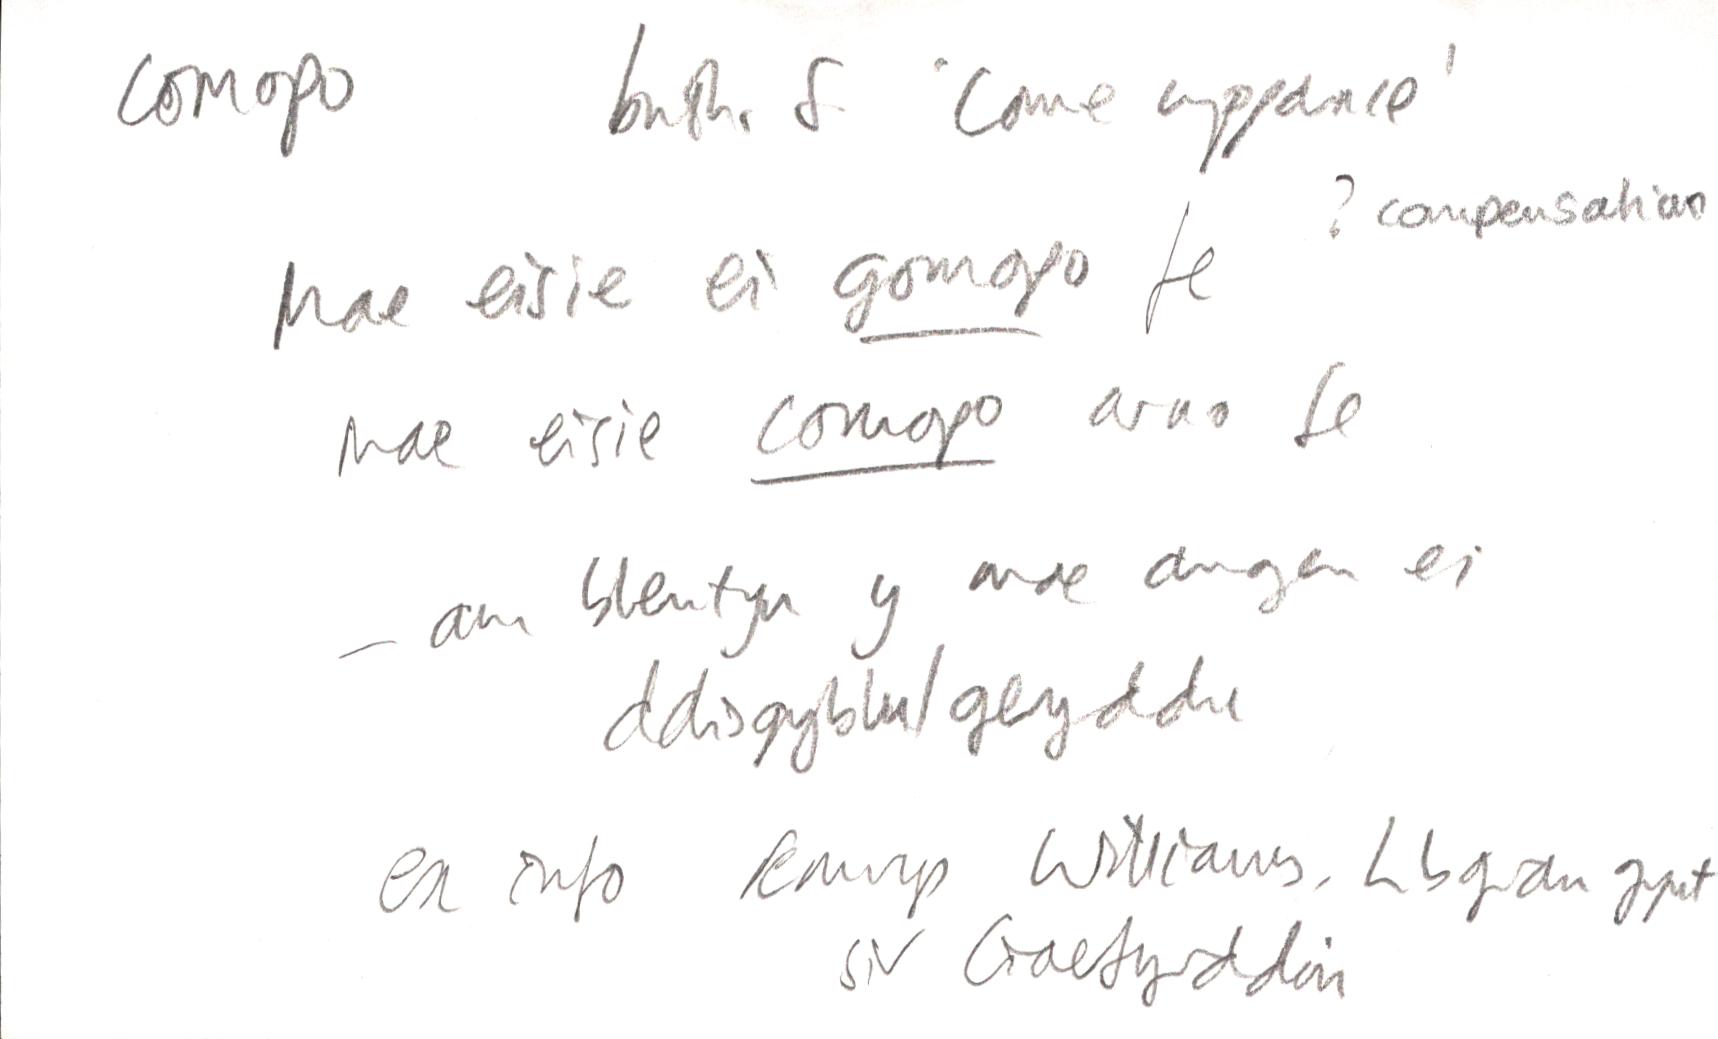 comopo benth. S. 'come uppance'
? compensation
Mae eisie ei gomopo fe
Mae eisie comopo arno fe
– am blentyn y mae angen ei
ddisgyblu/geryddu
ex info Williams, Llangynog
sir Gaefyrddin